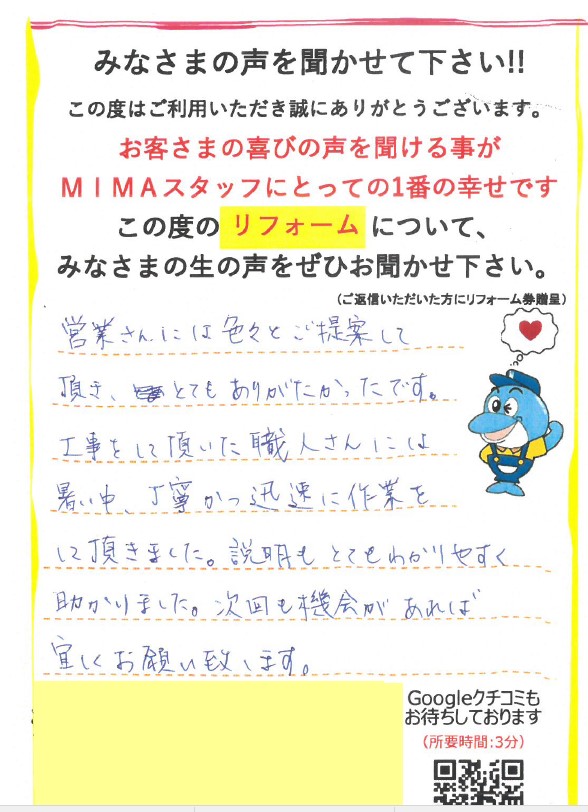 みなさまの声を聞かせて下さい!!
この度はご利用いただき誠にありがとうございます。
お客さまの喜びの声を聞ける事が
MIMAスタッフにとっての1番の幸せです
この度のリフォームについて、
みなさまの生の声をぜひお聞かせ下さい。
(ご返信いただいた方にリフォーム券贈呈)
営業さんには色々とご提案して
頂き、とてもありがたかったです。
工事をして頂いた職人さんには
暑い中、丁寧かつ迅速に作業を
して頂きました。説明もとてもわかりやすく
助かりました。次回も機会があれば
宜しくお願い致します。
Googleクチコミも
お待ちしております
(所要時間:3分)